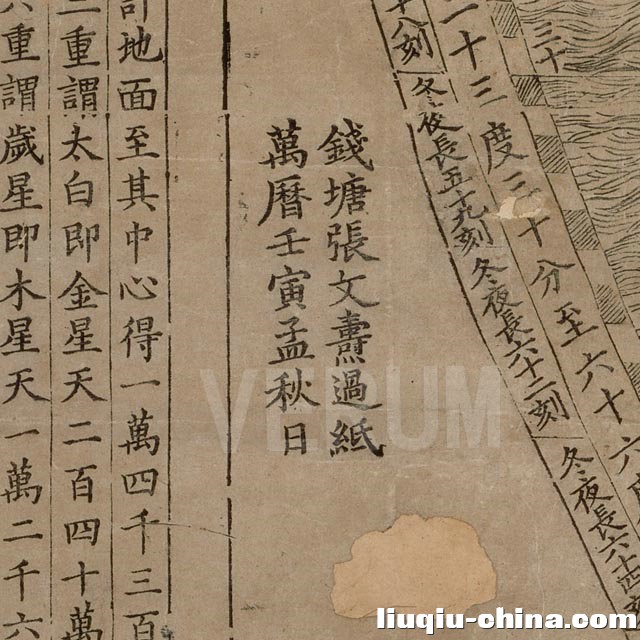 三十
一十三度二十分至六十六
十八刻 冬夜長五十九刻 冬夜長六十二刻 冬夜長六十四
錢塘張文燾過紙
萬曆壬寅孟秋日
地面至其中心得一萬四千三百
二重謂太白即金星天二百四十萬
六重謂歲星即木星天一萬二千六
VERUM
liuqiu-china.com